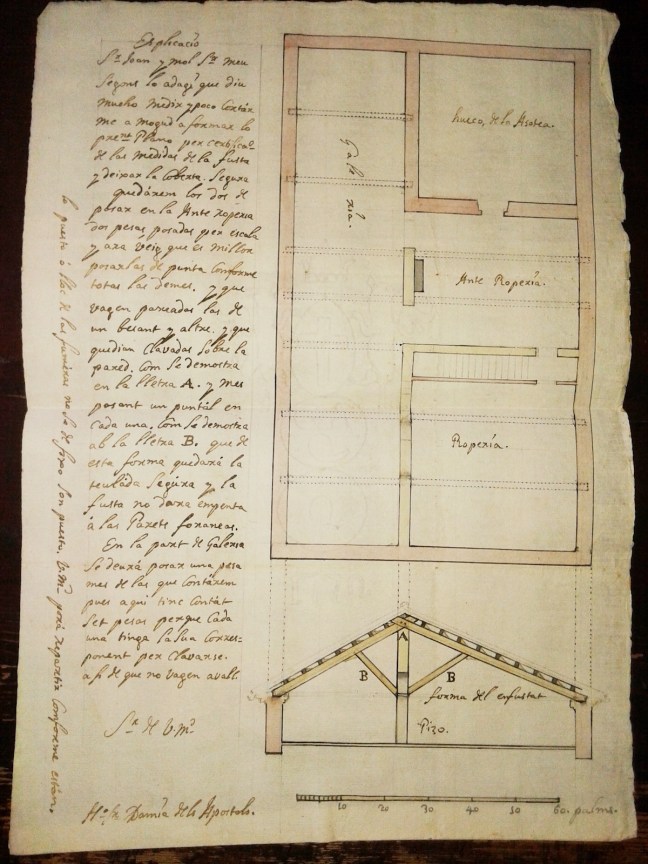 Explicacio
Sr. Joan y mol Sr. meu
Segons lo adagi que diu
mucho medir y poco cortár
me a mogud a formar lo
prent. Plano per
de las medidas de la fusta
y deixar la Coberta. Segura
quedárem los dos de
posar en la Ante roperia
dos pesas posadas per escala
y ara veig que es millor
posarlas de punta Conforme
totas las demes. y que
vagen pareadas las de
un besant y altre. y que
quedian Clavadas sobre la
pared. Com se demostra
en la lletra A. y mes
posant un puntál en
cada una. Com se demostra
ab la lletra B. que de
esta forma quedará la
teulada Segúra y la
fusta no dara empenta
á las Parets foraneas.
En la part de Galeria
Se deurá posar una pesa
mes de las que Contárem
pues aqui tinc Contat
Set pesas perque Cada
una tinga la Sua Corres=
ponent per Clavarse.
a fi de que no vagen avall.
Sr. de V.md.
Fr. Damiá dels Apostols.
lo puesto ó lloc de las no se de fixo son puesto. V.md. porá repartir Conforme están.
Galeria.
hueco, de la Asotea.
Ante Roperia.
Roperia.
A
B
B
forma del enfustat
Pizo.
10 20 30 40 50 60. palms.